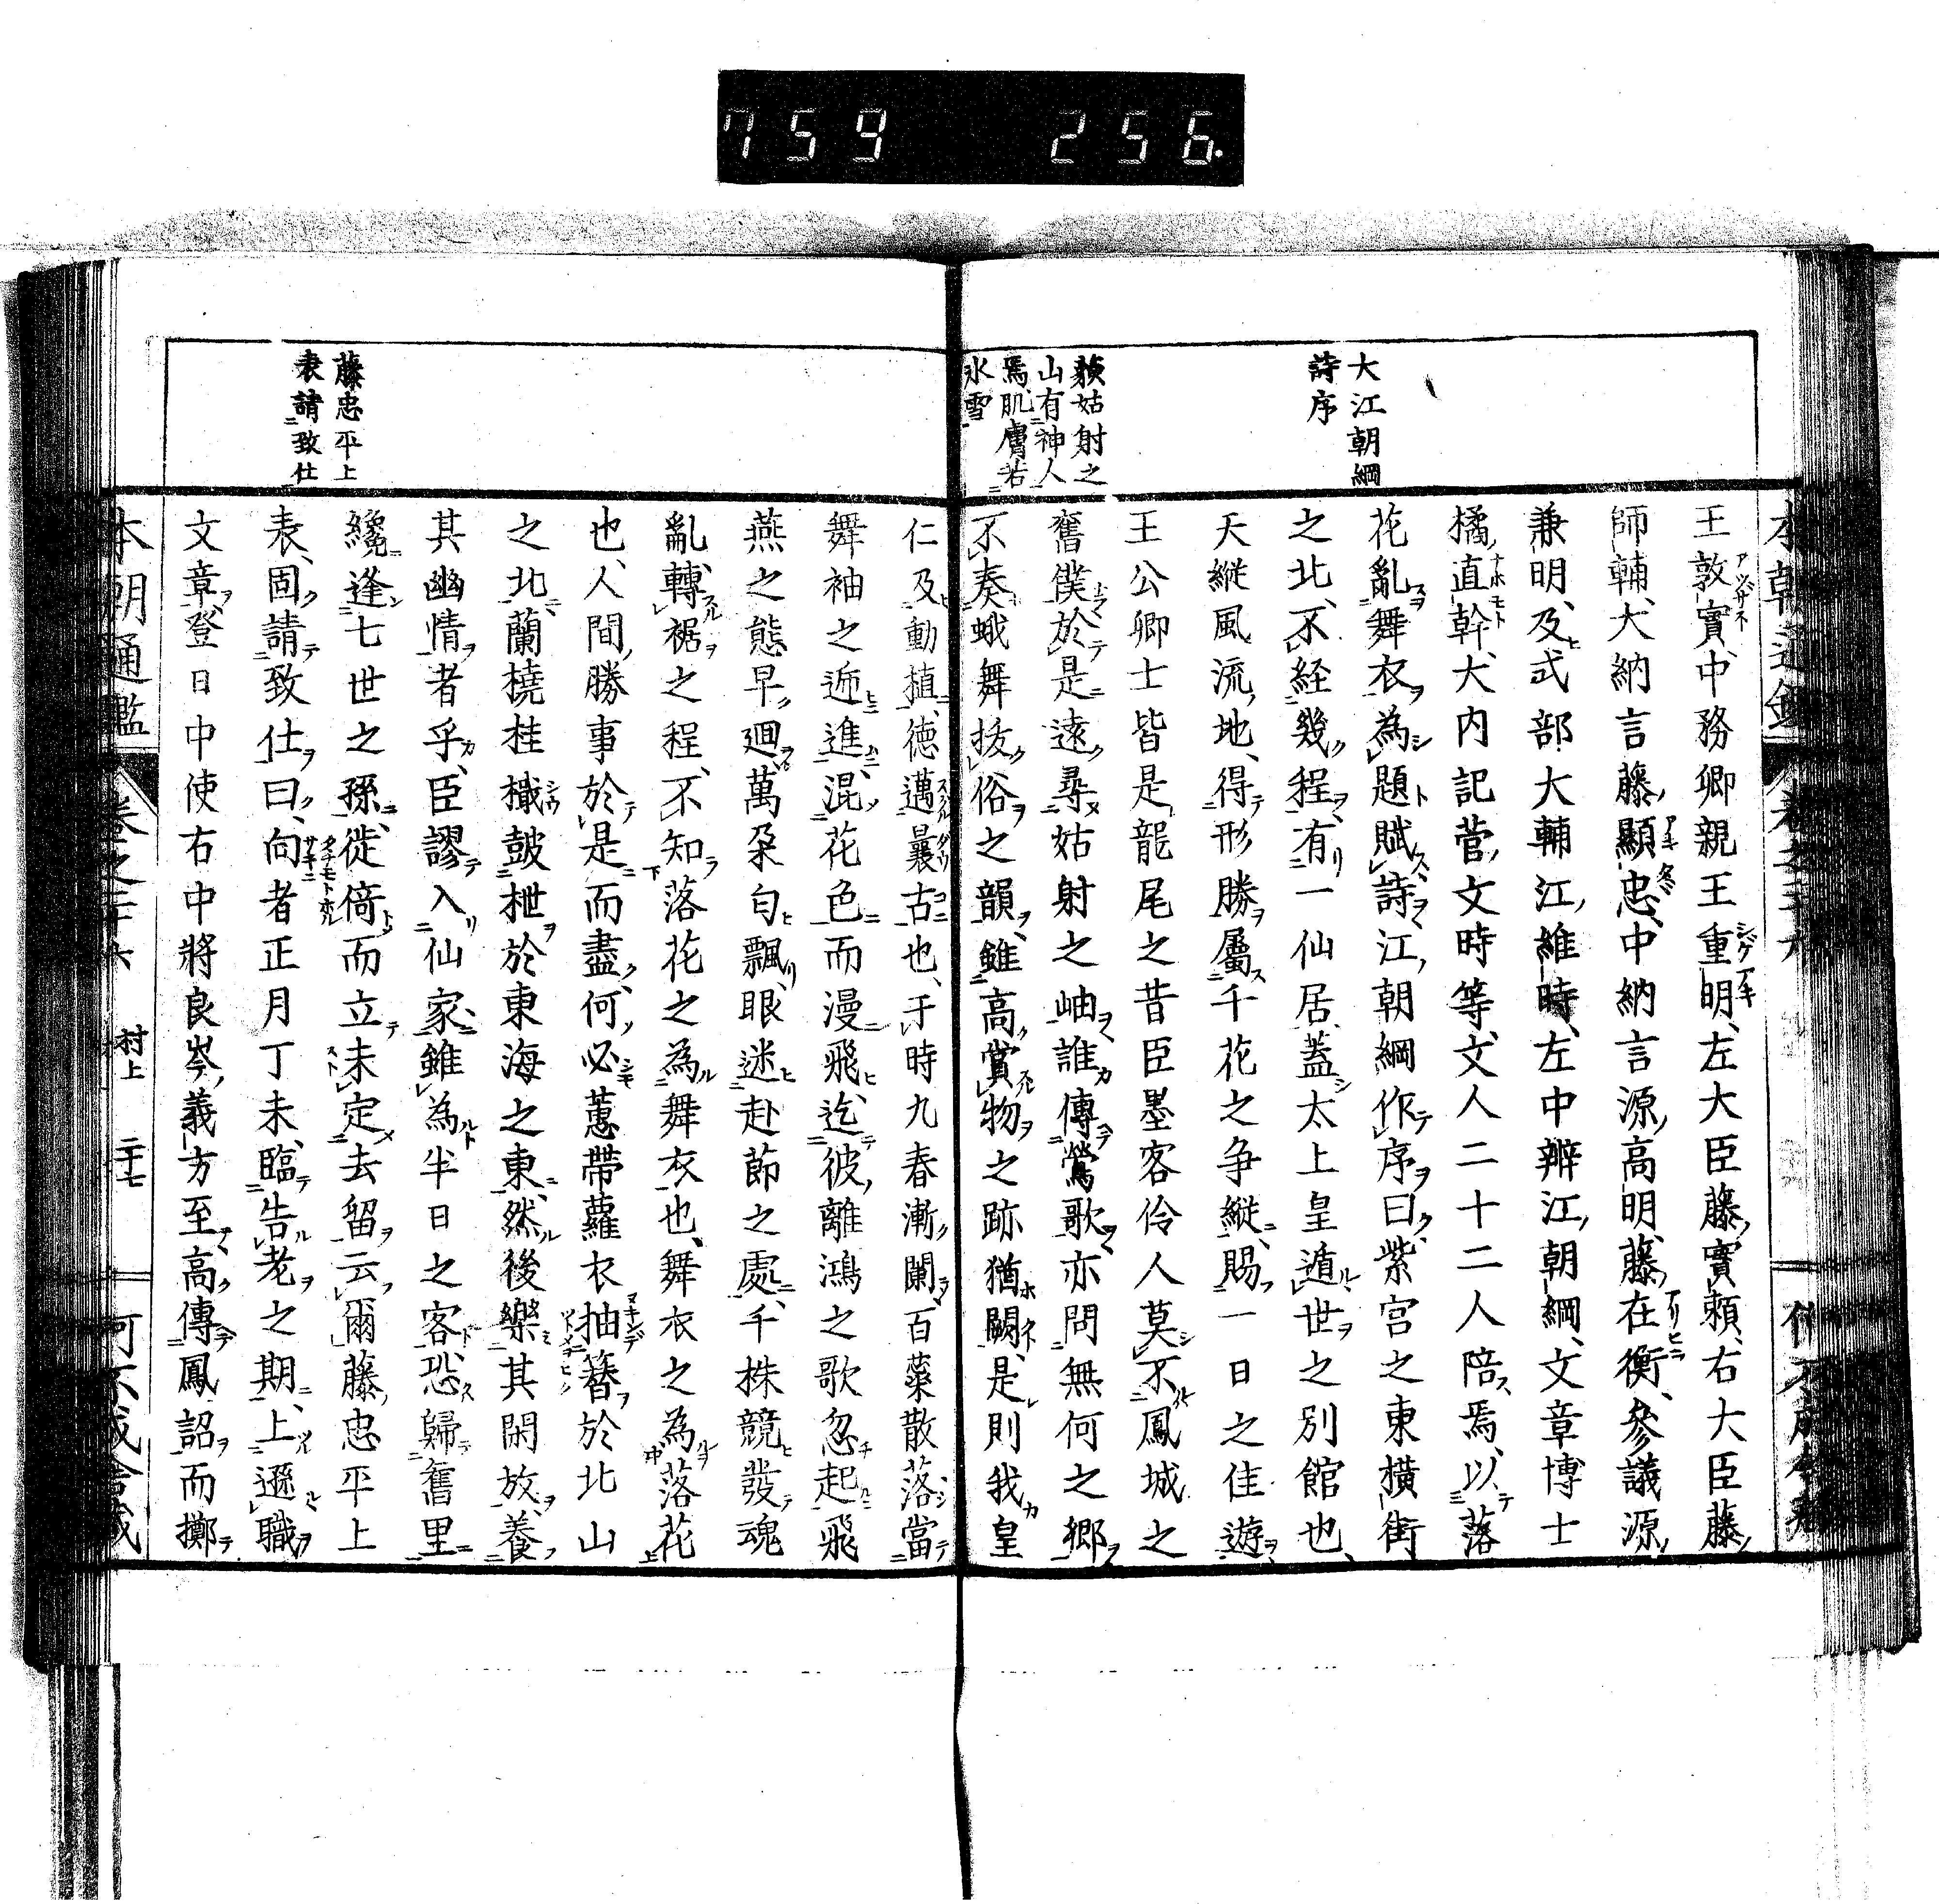 759 256.
大江朝綱
詩序
藐姑射之
山有神人
焉肌膚若
氷雪
王敦實、中務卿親王重明、左大臣藤實頼、右大臣藤
師輔、大納言藤顯忠、中納言源高明、藤在衡、參議源
兼明、及式部大輔江維時、左中辨江朝綱、文章博士
橘直幹、大内記菅文時等、文人二十二人陪焉、以落
花亂舞衣為題賦詩、江朝綱作序曰、紫宮之東横街
之北、不経幾程、有一仙居、蓋太上皇遁世之別館也、
天縱風流、地得形勝、屬千花之争綻、賜一日之佳遊、
王公卿士皆是龍尾之昔臣墨客伶人莫不鳳城之
舊僕、於是遠尋姑射之岫、誰傳鶯歌、亦問無何之郷、
不奏蛾舞、抜俗之韻雖高、賞物之跡猶闕、是則我皇
藤忠平上
表請致仕
仁及動植、徳邁曩古也、于時九春漸闌、百蘂散落、當
舞袖之逓進、混花色而漫飛、迄彼離鴻之歌忽起、飛
燕之態早廻、萬朶匂飄、眼迷赴節之處、千株競發、魂
亂轉裾之程、不知落花之為舞衣也、舞衣之為落花
也、人間勝事於是而盡、何必蕙帶蘿衣抽簪於北山
之北、蘭橈桂檝鼓枻於東海之東、然後樂其閑放、養
其幽情者乎、臣謬入仙家、雖為半日之客、恐歸舊里
纔逢七世之孫、徙倚而立、未定去留云爾、藤忠平上
表、固請致仕曰、向者正月丁未、臨告老之期、上遜職
文章、登日中使右中將良岑義方至、高傳鳳詔而擲
本朝通鑑
村上
二十七